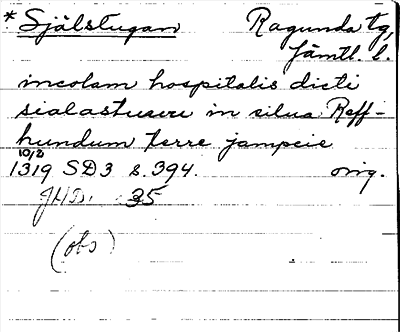 * Själstugan Ragunda tg,
Jämtl. l.
incolam hospitalis dicti
sialastuwu in silua Reff-
hundum terre jampcie
10/2
1319 SD3 s. 394. orig.
JHD. 35
(obs)